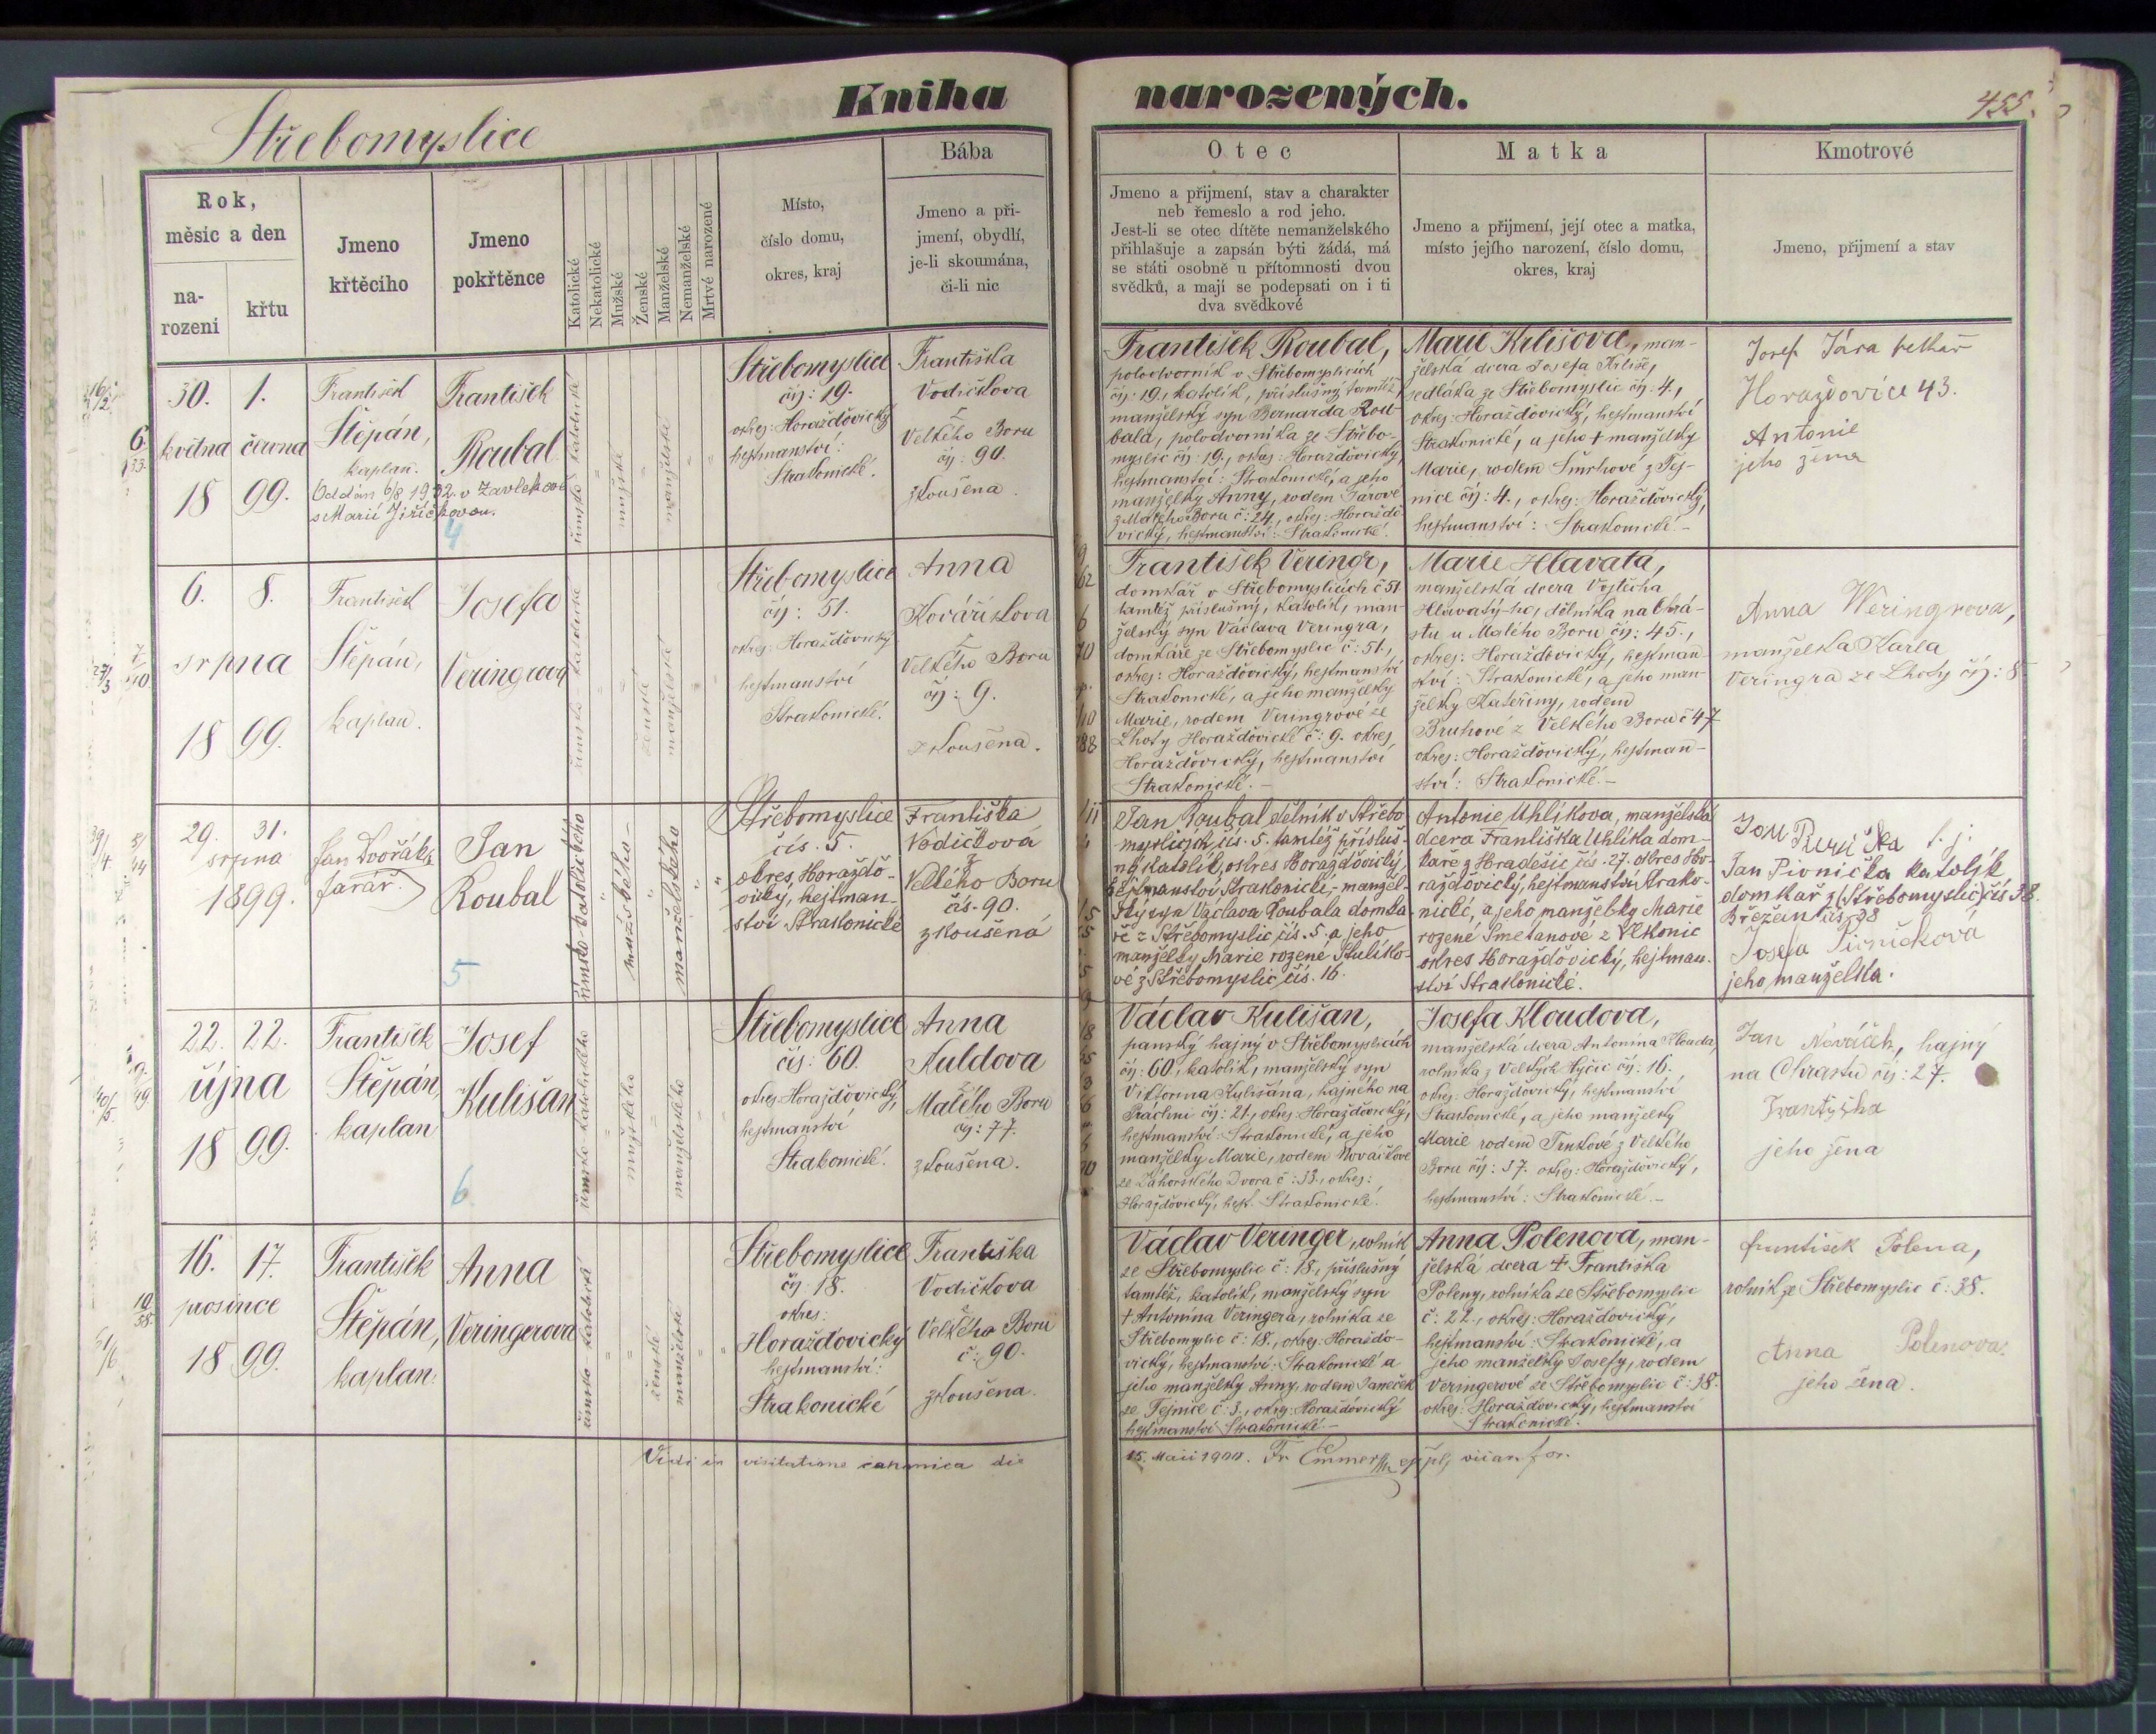 Kniha narozených.
455.
Střebomyslice
Rok,
měsíc a den
na-
rození
křtu
Jmeno
křtěcího
Jmeno
pokřtěnce
Katolické
Nekatolické
Mužské
Ženské
Manželské
Nemanželské
Mrtvé narozené
Místo,
číslo domu,
okres, kraj
Bába
Jmeno a při-
jmení, obydlí,
je-li skoumána,
či-li nic
Otec
Jmeno a přijmení, stav a charakter
neb řemeslo a rod jeho.
Jest-li se otec dítěte nemanželského
přihlašuje a zapsán býti žádá, má
se státi osobně u přítomnosti dvou
svědků, a mají se podepsati on i ti
dva svědkové
Matka
Jmeno a přijmení, její otec a matka,
místo jejího narození, číslo domu,
okres, kraj
Kmotrové
Jmeno, přijmení a stav
30. 1.
května června
18 99.
František
Štěpán,
kaplan.
Oddán 6/8 1932 v Zavlekově
s Marií Jiříčkovou.
František
Roubal
4
mužské
manželské
Střebomyslice
čís: 19.
okres: Horažďovický
hejtmanství:
Strakonické.
Františka
Vodičkova
z
Velkého Boru
čís: 90.
zkoušena.
František Roubal,
polodvorník v Střebomyslicích
čís: 19., katolík, příslušný tamtéž,
manželský syn Bernarda Rou-
bala, polodvorníka ze Střebo-
myslic čís: 19., okres: Horažďovický,
hejtmanství: Strakonické, a jeho
manželky Anny, rodem Járové
z Malého Boru č: 24., okres: Horažďo-
vický, hejtmanství: Strakonické.
Marie Krlišova, man-
želská dcera Josefa Krliše,
sedláka ze Střebomyslic čís: 4.,
okres: Horažďovický, hejtmanství
Strakonické, a jeho † manželky
Marie, rodem Smrhové z Tej-
nice čís: 4., okres: Horažďovický,
hejtmanství: Strakonické.-
Josef Jára pekař
Horažďovice 43.
Antonie
jeho žena
6. 8.
srpna
18 99.
František
Štěpán,
kaplan.
Josefa
Veringrová
ženské
manželské
Střebomyslice
čís: 51.
okres: Horažďovický
hejtmanství
Strakonické.
Anna
Kovaříkova
z
Velkého Boru
čís: 9.
zkoušena.
František Veringr,
domkář v Střebomyslicích č 51
tamtéž příslušný, katolík, man-
želský syn Václava Veringra,
domkáře ze Střebomyslic č: 51.,
okres: Horažďovický, hejtmanství
Strakonické, a jeho manželky
Marie, rodem Veringrové ze
Lhoty Horažďovické č: 9. okres
Horažďovický, hejtmanství
Strakonické.-
Marie Hlavatá,
manželská dcera Vojtěcha
Hlavatý-ho, dělníka na Chrá-
stu u Malého Boru čís: 45.,
okres: Horažďovický, hejtman-
ství: Strakonické, a jeho man-
želky Kateřiny, rodem
Bruhové z Velkého Boru č 47
okres: Horažďovický, hejtman-
ství: Strakonické.-
Anna Weringrova,
manželka Karla
Veringra ze Lhoty čís: 8
29. 31.
srpna
1899.
Jan Dvořák,
farář.
Jan
Roubal
5
římsko-katolického
mužského
manželského
Střebomyslice
čís. 5.
okres Horažďo-
vický, hejtman-
ství Strakonické
Františka
Vodičková
z
Velkého Boru
čís. 90.
zkoušená
Jan Roubal dělník v Střebo
myslicích, čís. 5. tamtéž přísluš-
ný katolík, okres Horažďovický,
hejtmanství Strakonické, manžel-
ský syn Václava Roubala domká-
ře z Střebomyslic čís. 5. a jeho
manželky Marie rozené Škulíko-
vé z Střebomyslic čís. 16.
Antonie Uhlíkova, manželská
dcera Františka Uhlíka dom-
káře z Hradešic čís. 27. okres Ho-
ražďovický, hejtmanství Strako-
nické, a jeho manželky Marie
rozené Smetanové z Vlkonic
okres Horažďovický, hejtman-
ství Strakonické.
Jan Pivnička katolík
domkář z (Střebomyslic) čís 38.
Břežan čís. 98
Josefa Pivničková
jeho manželka.
22. 22.
října
18 99.
František
Štěpán,
kaplan
Josef
Kulišan
6
římsko-katolického
mužského
manželského
Střebomyslice
čís: 60.
okres Horažďovický,
hejtmanství
Strakonické.
Anna
Kuldova
z
Malého Boru
čís: 77.
zkoušena.
Václav Kulišan,
panský hajný v Střebomyslicích
čís: 60., katolík, manželský syn
Viktorina Kulišána, hajného na
čís: 21., okres: Horažďovický,
hejtmanství: Strakonické, a jeho
manželky Marie, rodem Nováčkové
ze Záhorského Dvora č: 33., okres:
Horažďovický, hejt. Strakonické.
Josefa Kloudova,
manželská dcera Antonína Klouda,
rolníka z Velkých Hyčic čís: 16.
okres: Horažďovický, hejtmanství
Strakonické, a jeho manželky
Marie rodem Trnkové z Velkého
Boru čís: 37. okres: Horažďovický,
hejtmanství: Strakonické.-
Jan Nováček, hajný
na Chrastu čís: 27.
Frantyška
jeho žena
16. 17.
prosince
18 99.
František
Štěpán,
kaplan.
Anna
Veringerova
římsko-katolické
ženské
manželské
Střebomyslice
čís: 18.
okres:
Horažďovický
hejtmanství:
Strakonické
Františka
Vodičkova
z
Velkého Boru
č: 90.
zkoušena.
Václav Veringer, rolník
ze Střebomyslic č: 18., příslušný
tamtéž, katolík, manželský syn
† Antonína Veringera, rolníka ze
Střebomyslic č: 18., okres: Horažďo-
vický, hejtmanství: Strakonické a
jeho manželky Anny, rodem Janeček
ze Tejnice č: 3., okres: Horažďovický
hejtmanství Strakonické.-
Anna Polenova, man-
želská dcera † Františka
Poleny, rolníka ze Střebomyslic
č: 22., okres: Horažďovický,
hejtmanství: Strakonické, a
jeho manželky Josefy, rodem
Veringerové ze Střebomyslic č: 38.
okres: Horažďovický, hejtmanství
Strakonické.
František Polena,
rolník ze Střebomyslic č: 38.
Anna Polenova.
jeho žena.
Vidi in visitatione canonica die
15. Maii 1900. Fr.